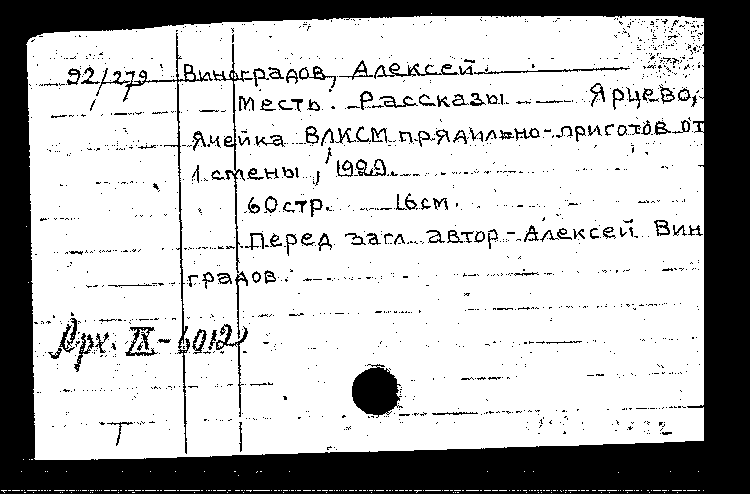 92/279 Виноградов, Алексей
Месть. Рассказы Ярцево,
Ячейка ВЛКСМ прядильно-приготов от
1 смены, 1929.
60стр. 16см.
Перед загл. автор - Алексей Вин
градов.
Арх. IX-6012